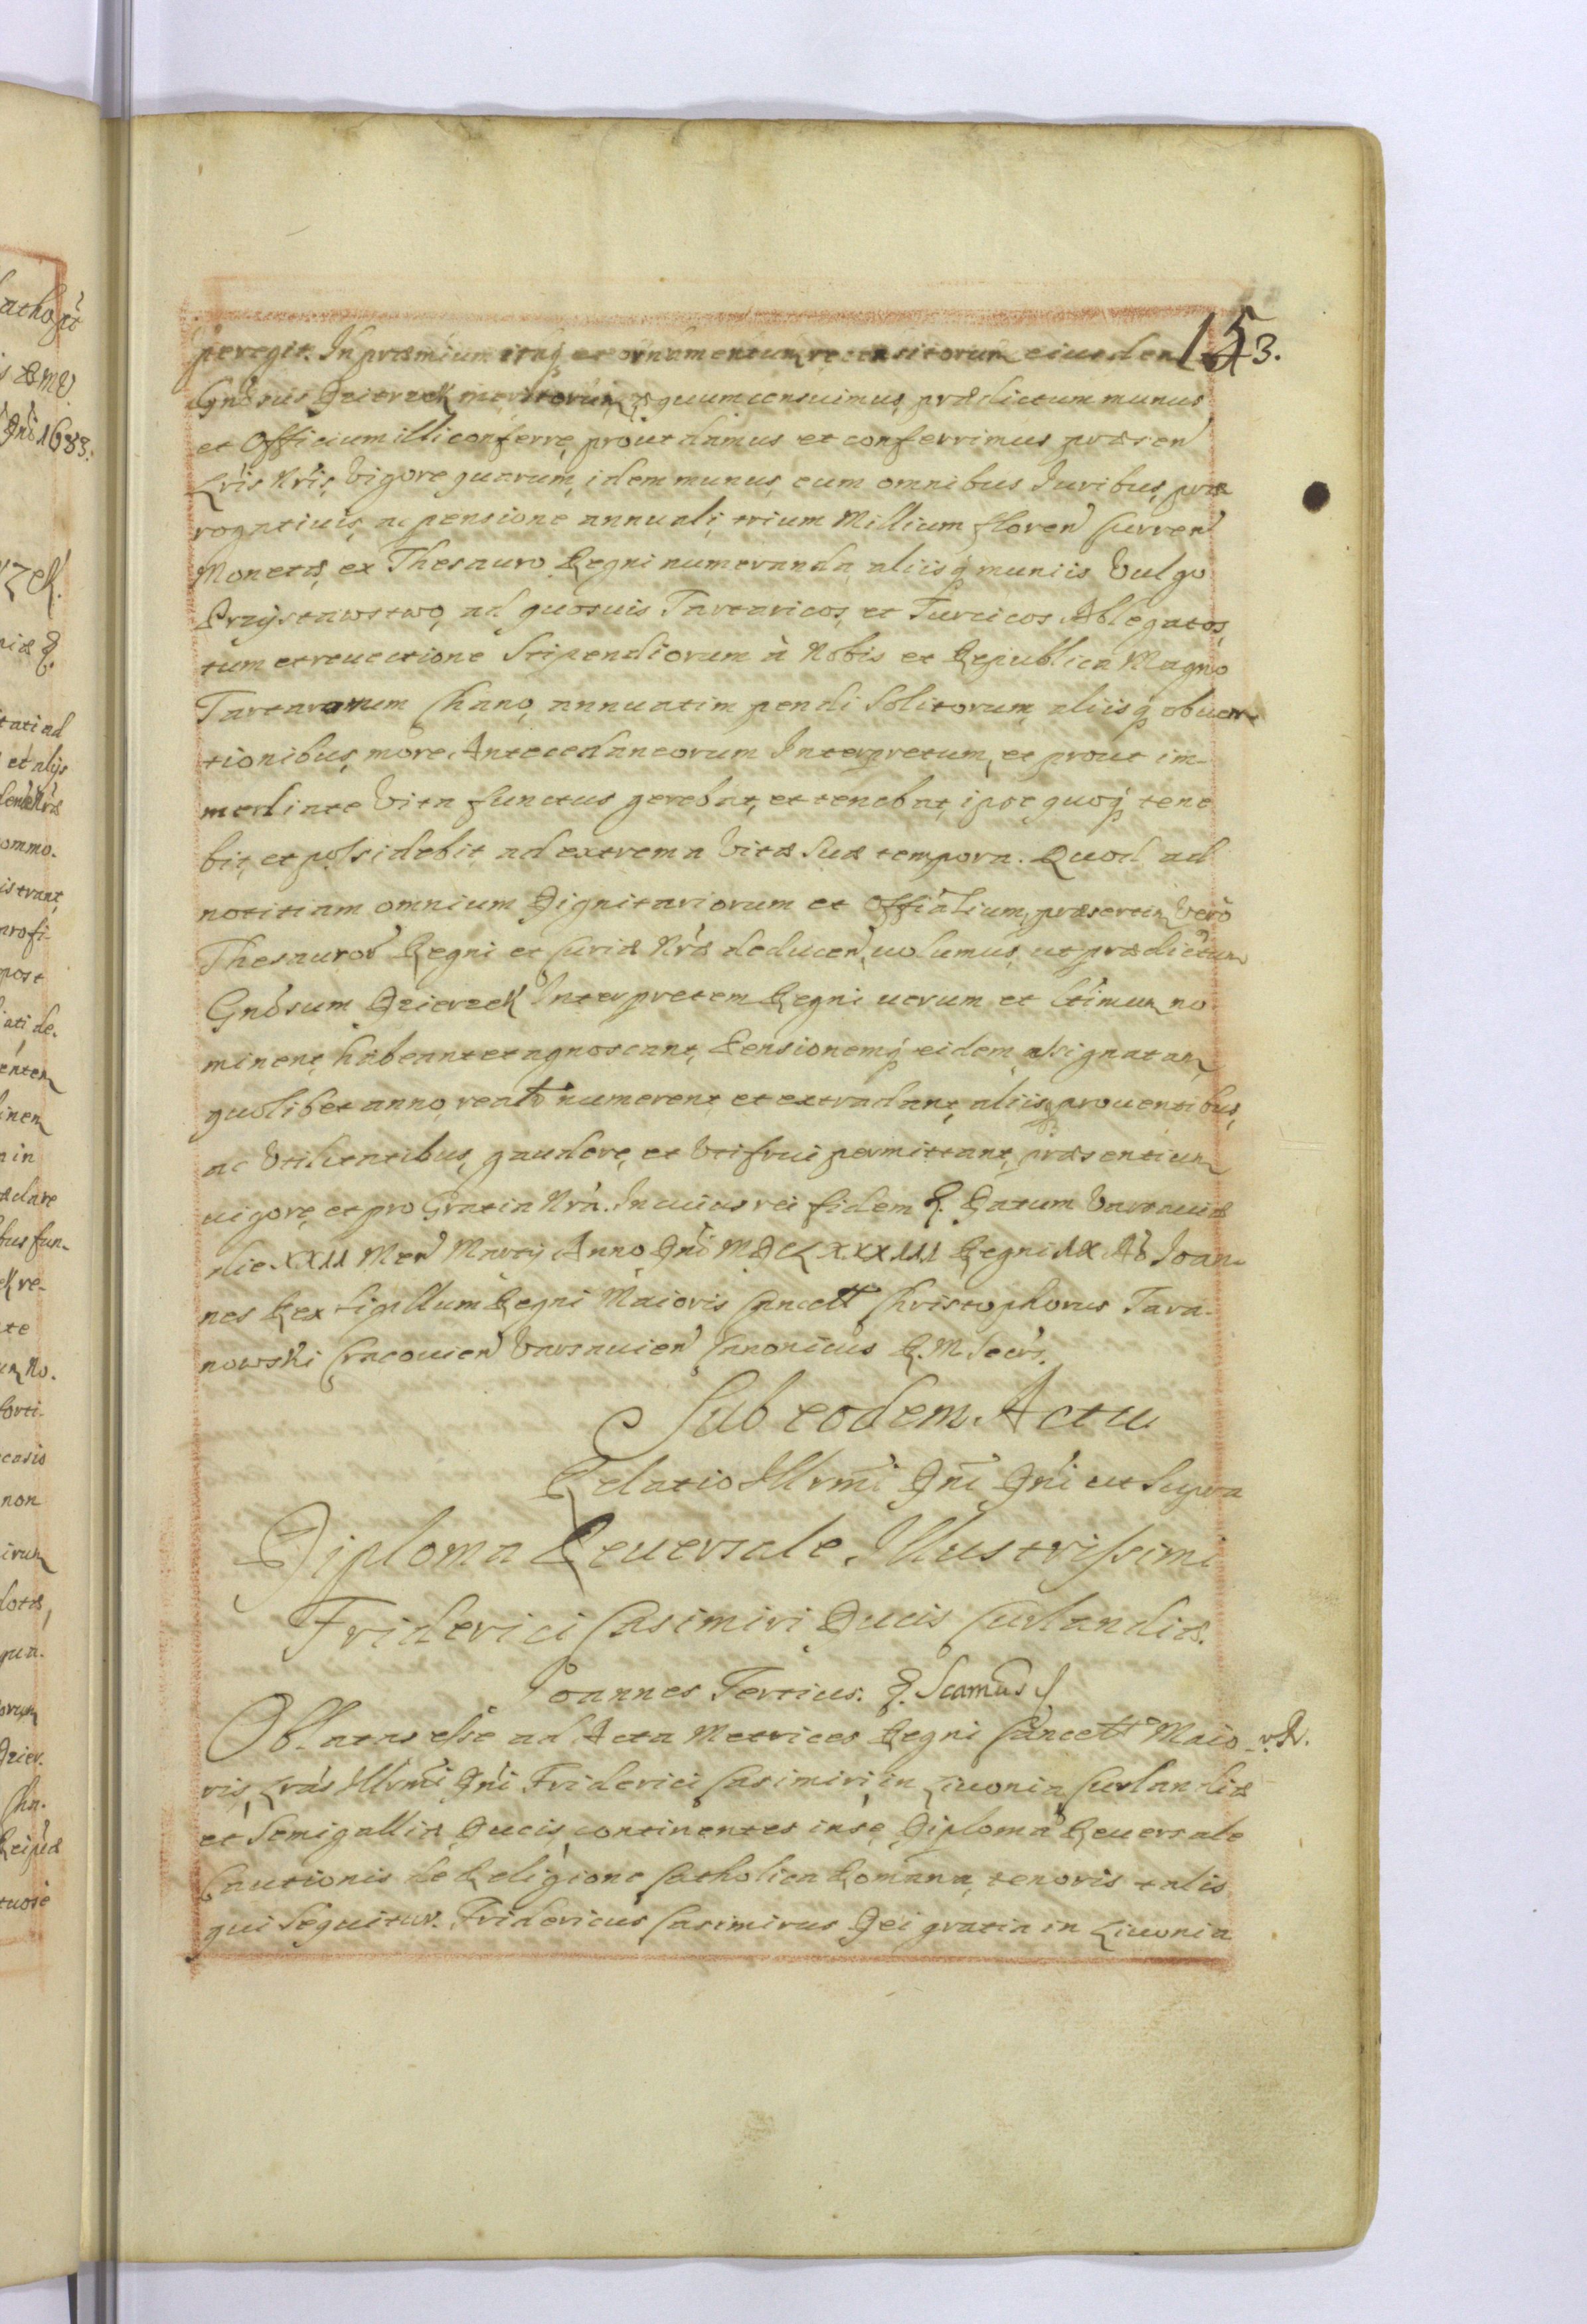 153.
peregit. In præmium itaq₃ et ornamentum recensitorum eiusdem
Gnosus Dzierzek meritorum, æquum censuimus, prædictum munus
et Officium illi conferre, prout damus et conferrimus præsen
Lris Nris, Vigore quarum, idem munus, cum omnibus Juribus, præ
rogatiuis, ac pensione annuali, trium Millium floren Curren
Monetæ, ex Thesauro Regni numeranda, aliisq₃ muniis Vulgo
Przystawstwo, ad quosuis Tartaricos, et Turcicos Ablegatos,
tum et reuectione Stipendiorum à Nobis et Republica Magno
Tartarorum Chano, annuatim pendi Solitorum, aliisq₃ obuen-
tionibus, more Antecedaneorum Interpretum, et prout im-
mediate Vita functus gerebat, et tenebat, ipse quoq₃ tene
bit, et possidebit ad extrema Vitæ Suæ tempora. Quod ad
notitiam omnium Dignitariorum et Officialium, præsertim Verò
Thesauror Regni et Curiæ Nræ deducen, uolumus, ut prædictum
Gnosum Dzierzek Interpretem Regni uerum et Ltimum no
minent, habeant et agnoscant, Pensionemq₃ eidem assignatam,
quolibet anno, realr numerent et extradant, aliisq₃ prouentibus,
ac Vtilitatibus, gaudere, et Vti frui permittant, præsentium
uigore, et pro Gratia Nra. In cuius rei fidem &. Datum Varsauiæ
die XXII Men Martij Anno Dni MDCLXXXIII Regni IX Ao Joan-
nes Rex Sigillum Regni Maioris Cancell Christophorus Tara-
nowski Cracouien Varsauien Canonicus R. M. Secrs.
Sub eodem Actu
Relatio Illrmi Dni Dni ut Supra
Diploma Reuersale Illustrissimi
Friderici Casimiri Ducis Curlandiæ.
Joannes Tertius. &. Scamus
Oblatas esse ad Acta Metrices Regni Cancell Maio-
ris, Lras Illrmi Dni Friderici Casimiri, in Liuonia Curlandiæ
et Semigalliæ Ducis, continentes in se, Diploma Reuersale
Cautionis de Religione Catholica Romana, tenoris talis
qui Sequitur. Fridericus Casimirus Dei gratia in Liuonia